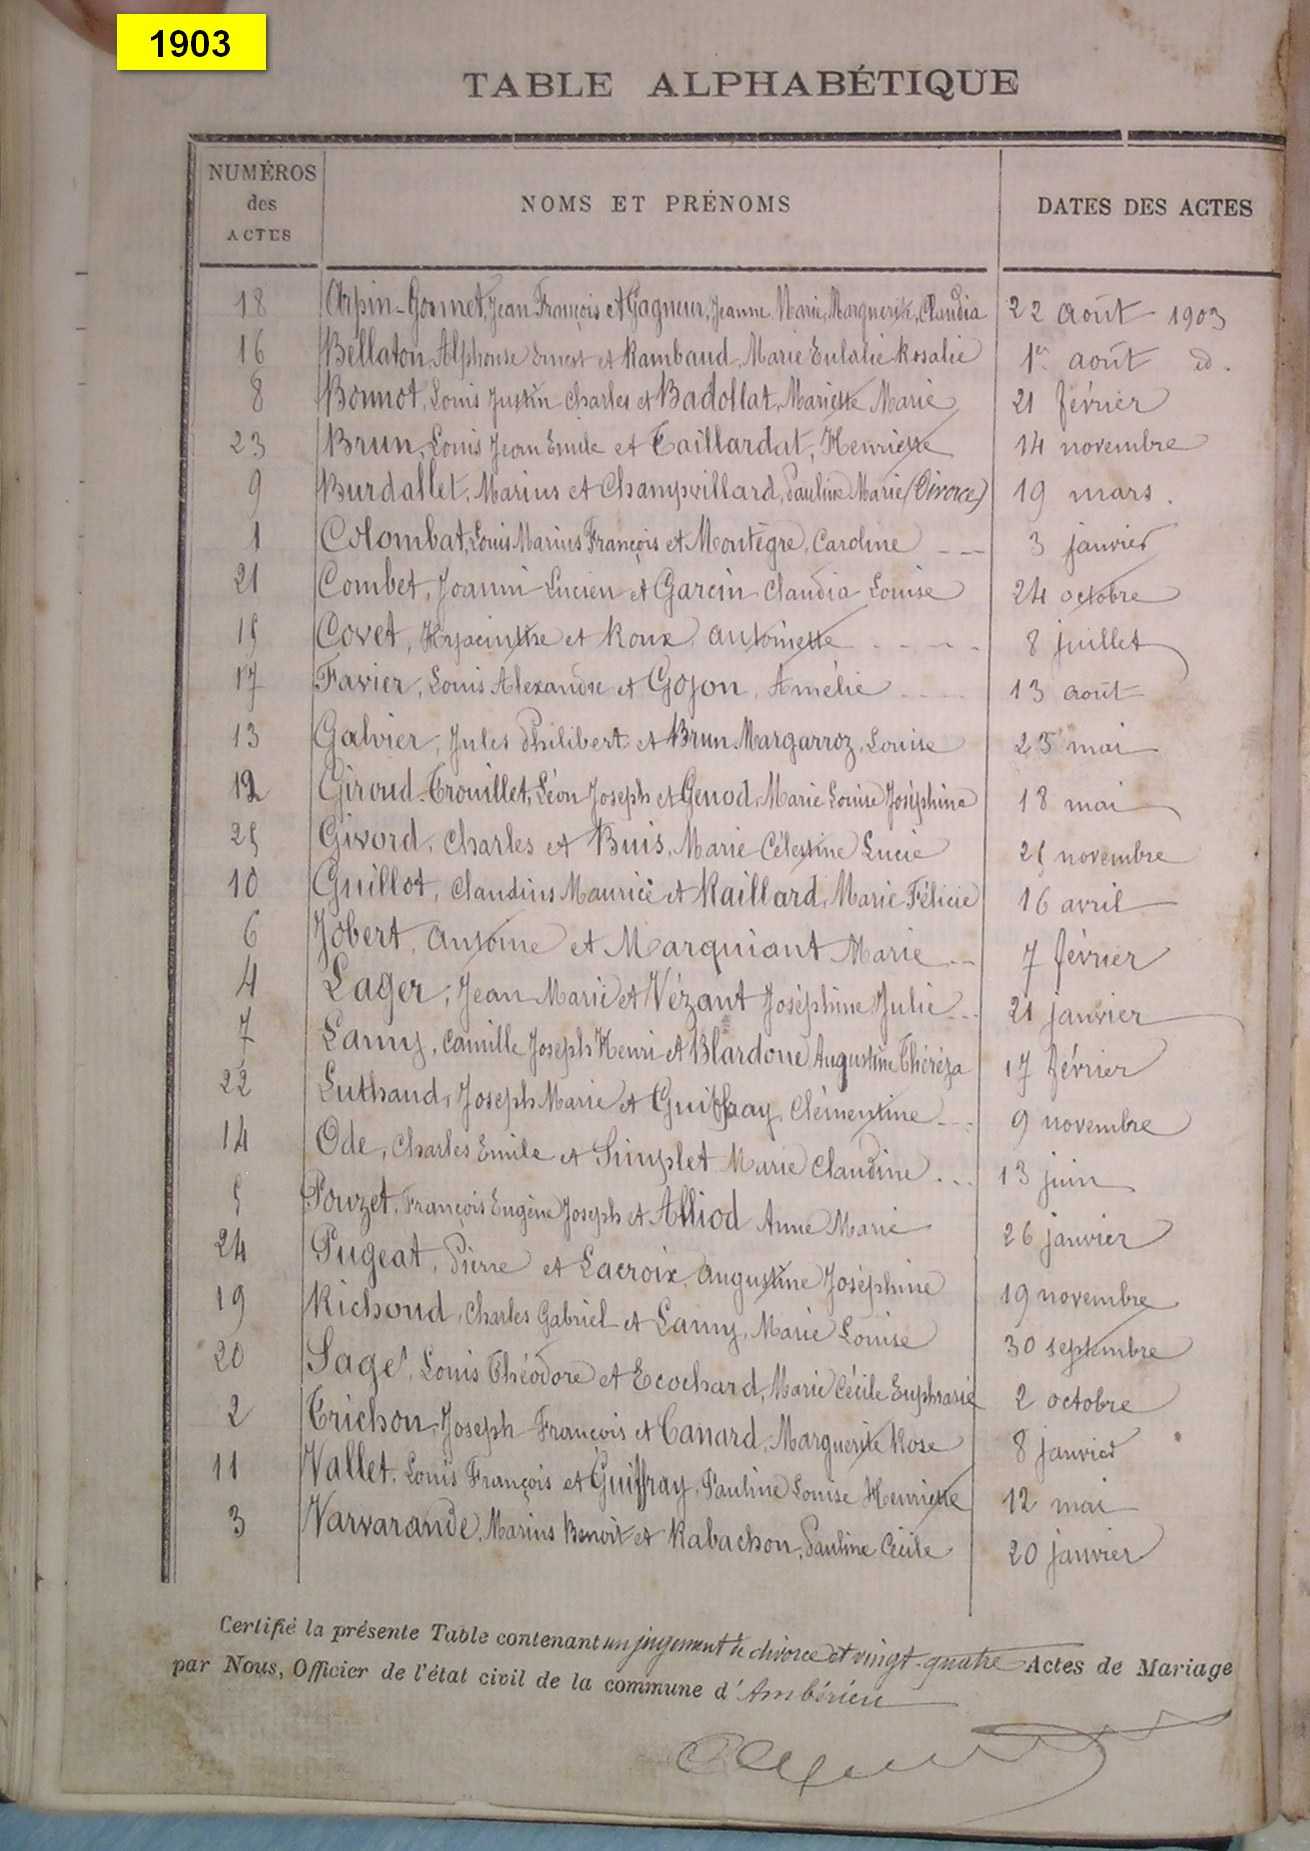 1903
TABLE ALPHABÉTIQUE
NUMÉROS des ACTES NOMS ET PRÉNOMS DATES DES ACTES
18 Arpin-Gonnet, Jean François et Gagneur, Jeanne Marie Marguerite, Claudia 22 août 1903
16 Bellaton, Alphonse Ernest et Rambaud, Marie Eulalie Rosalie 1er août d.
8 Bonnot, Louis Justin Charles et Badollat, Mariette Marie 21 février
23 Brun, Louis Jean Emile et Taillardat, Henriette 14 novembre
9 Burdallet, Marius et Champvillard, Pauline Marie (Divorce) 19 mars.
1 Colombat, Louis Marius François et Montègre, Caroline 3 janvier
21 Combet, Joanni Lucien et Garcin Claudia Louise 24 octobre
15 Covet, Hyacinthe et Roux, Antoinette 8 juillet
17 Favier, Louis Alexandre et Gojon, Amélie 13 août
13 Galvier, Jules Philibert et Brun Margarroz, Louise 25 mai
12 Giroud-Trouillet, Léon Joseph et Genod, Marie Louise Joséphine 18 mai
25 Givord, Charles et Buis, Marie Célestine Lucie 25 novembre
10 Guillot, Claudius Maurice et Raillard, Marie Félicie 16 avril
6 Jobert, Antoine et Marquiant Marie 7 février
4 Lager, Jean Marie et Vézant Joséphine Julie 21 janvier
7 Lamy, Camille Joseph Henri et Blardone Augustine Théréza 17 février
22 Luthaud, Joseph Marie et Guiffray, Clémentine 9 novembre
14 Ode, Charles Emile et Simplet Marie Claudine 13 juin
5 Pouzet, François Eugène Joseph et Alliod Anne Marie 26 janvier
24 Pugeat, Pierre et Lacroix, Augustine Joséphine 19 novembre
19 Richoud, Charles Gabriel et Lamy, Marie Louise 30 septembre
20 Sage, Louis Théodore et Ecochard, Marie Cécile Euphrasie 2 octobre
2 Trichon, Joseph François et Canard, Marguerite Rose 8 janvier
11 Vallet, Louis François et Guiffray, Pauline Louise Henriette 12 mai
3 Varvarande, Marius Benoît et Rabachon, Pauline Cécile 20 janvier
Certifié la présente Table contenant un jugement de divorce et vingt-quatre Actes de Mariage
par Nous, Officier de l'état civil de la commune d'Ambérieu